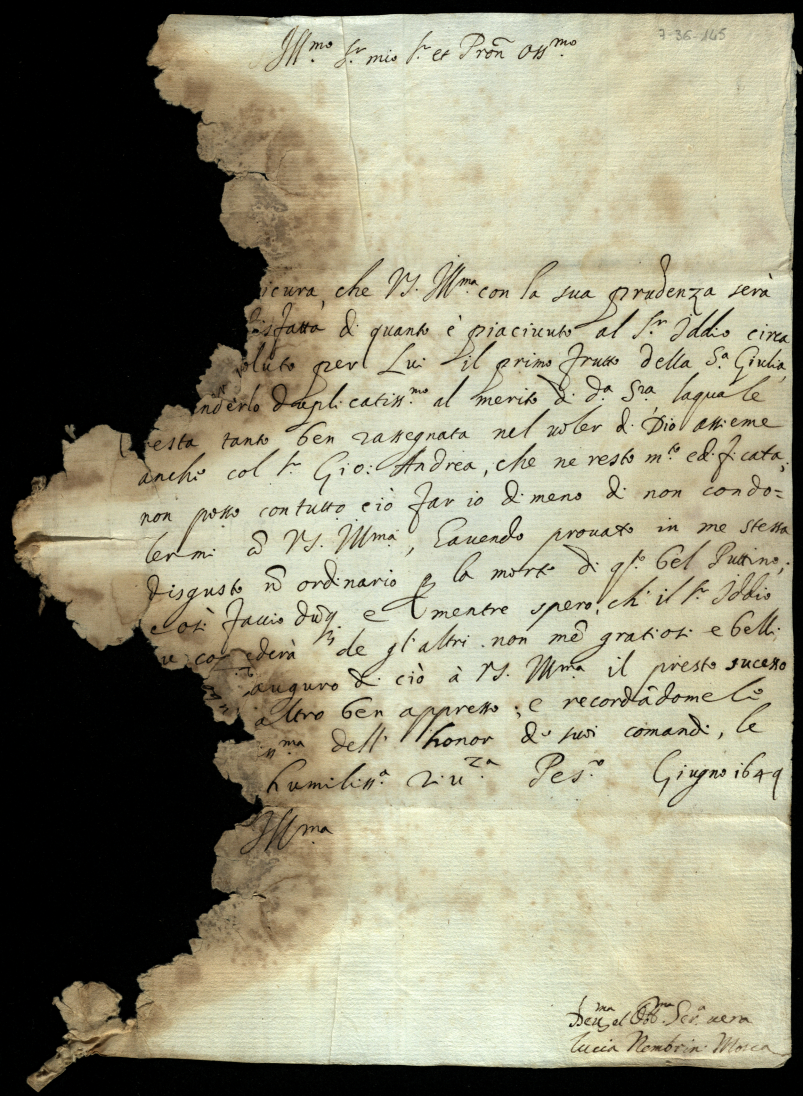 7-36-145
Ill.mo S.r mio S.r et Pron̄ Oss.mo
icura, che VS. Ill.ma con la sua prudenza serà
disfatta di quanto è piaciuuto al S.r Iddio circa
oluto per Lui il primo frutto della S.a Giulia,
nderlo duplicatiss.mo al merito di d.a S.ra laquale
esta tanto ben rassegnata nel uoler di Dio assieme
ancho col S.r Gio: Andrea, che ne resto m.to edificata;
non posso contutto ciò far io di meno di non condo=
lermi cō VS. Ill.ma, hauendo prouato in me stessa
disgusto nō ordinario p la morte di q.to bel Puttino;
così faccio duq; e mentre spero, ch' il S.r Iddio
ue concederà de gl'altri non mē gratiosi e belli
auguro di ciò à VS. Ill.ma il presto sucesso
altro ben appresso; e recordādomeli
ss.ma delli honor de suoi comandi, le
humiliss.a riu.za Pes.o Giugno 1649
Ill.ma
Deu.ma et Obb.ma Ser.a uera
Lucia Nombrin Mosca